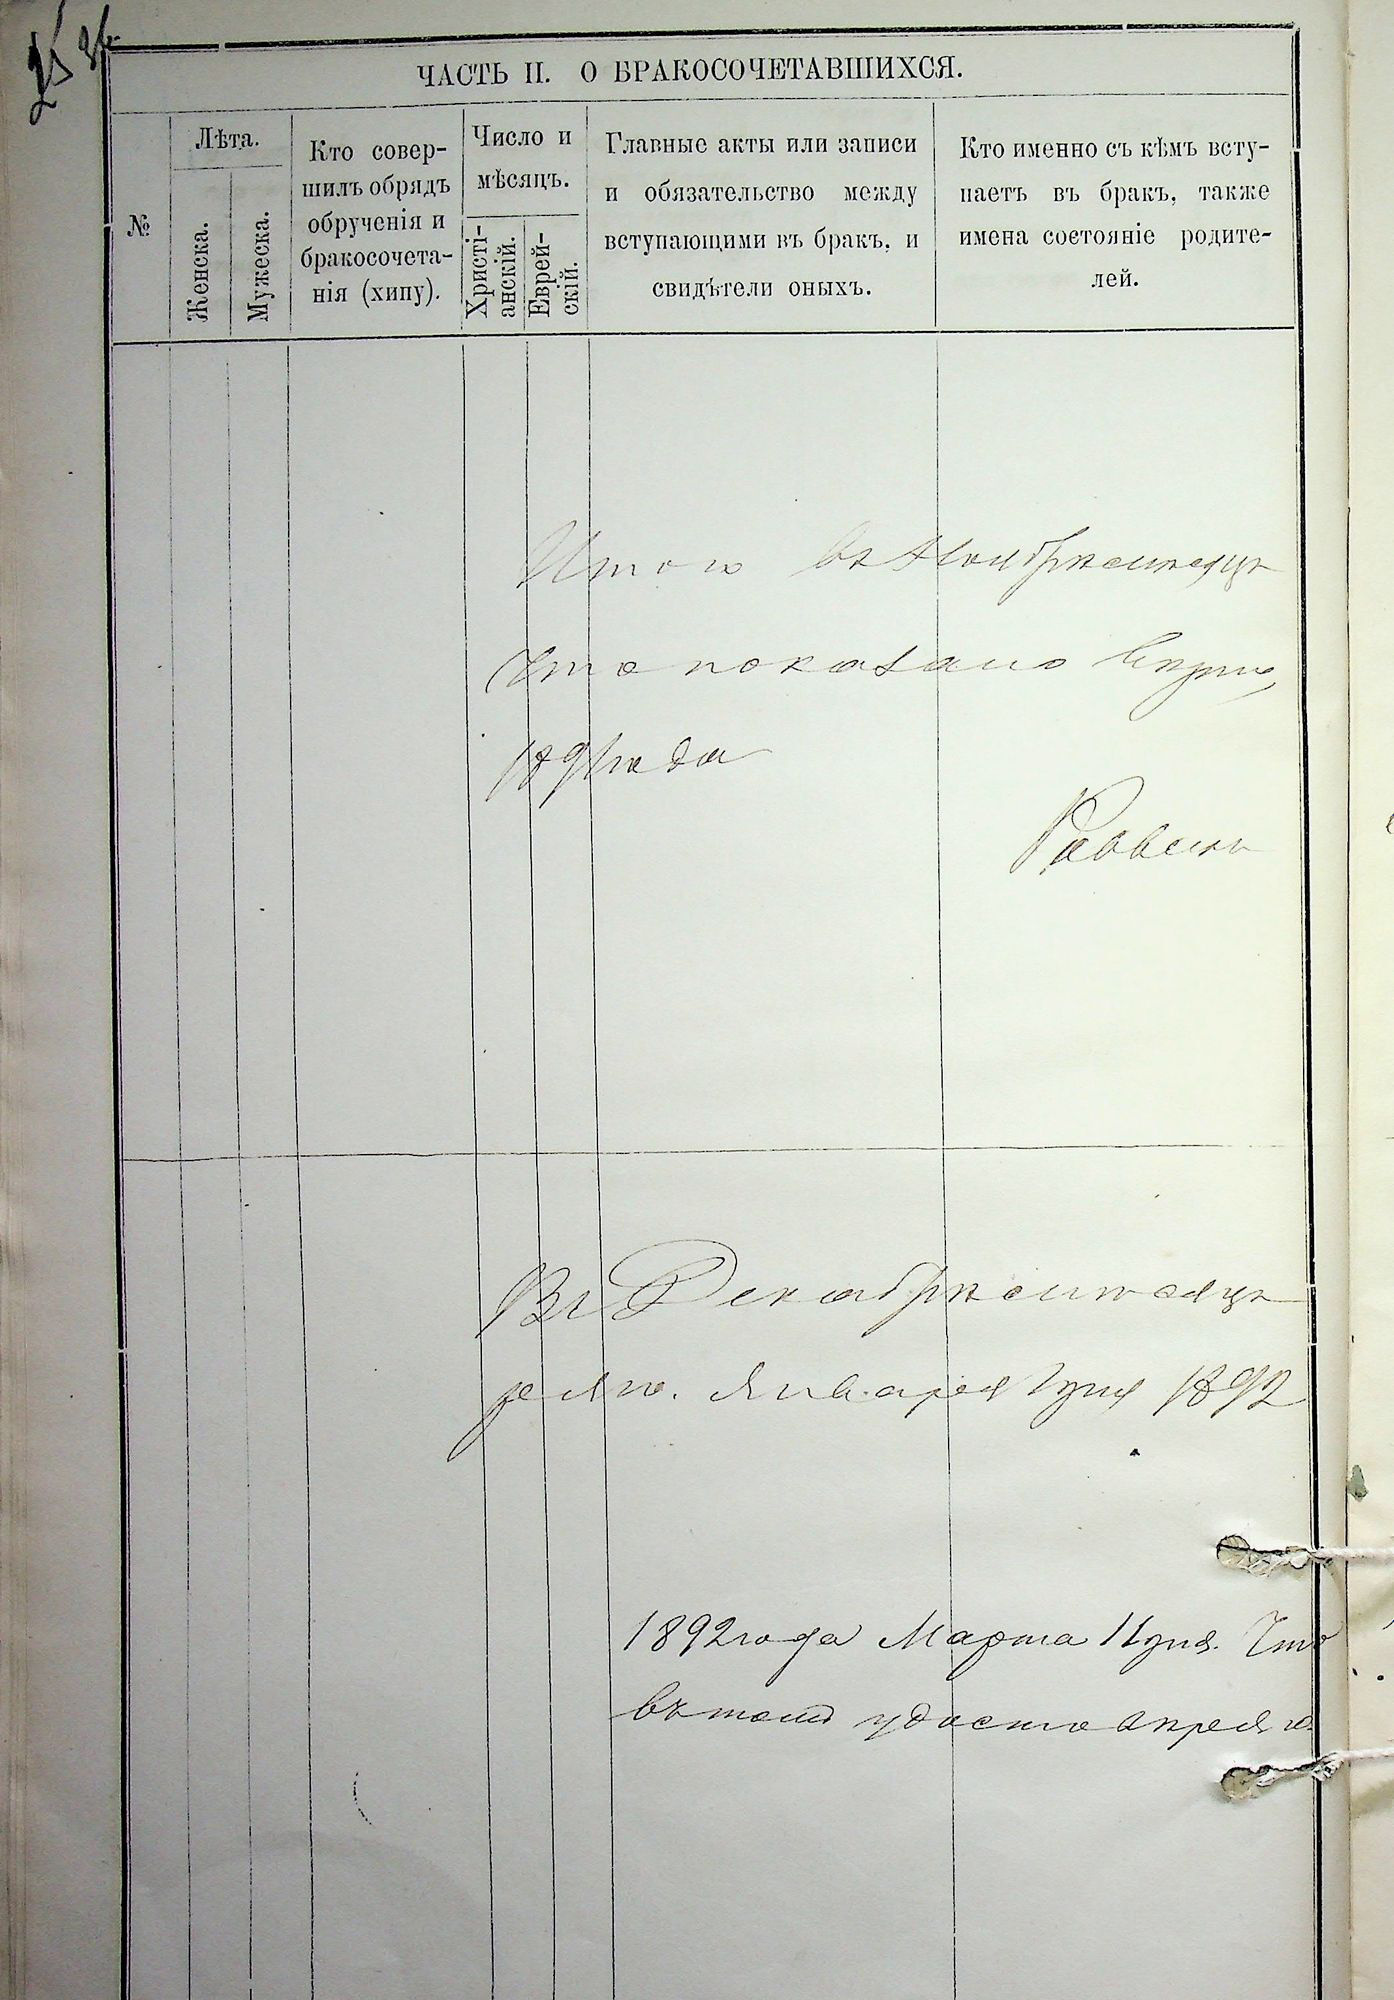 ЧАСТЬ II. О БРАКОСОЧЕТАВШИХСЯ.
№
Лѣта.
Женска.
Мужеска.
Кто совер-
шилъ обрядъ
обрученія и
бракосочета-
нія (хипу).
Число и
мѣсяцъ.
Христі-
анскій.
Еврей-
скій.
Главные акты или записи
и обязательство между
вступающими въ бракъ, и
свидѣтели оныхъ.
Кто именно съ кѣмъ всту-
паетъ въ бракъ, также
имена состояніе родите-
лей.
Итого въ Ноябрѣ мѣсяцѣ
что показано
1891 года
Раввинъ
Въ Декабрѣ мѣсяцѣ
Января 1 дня 1892
1892 года Марта 11 дня. Что
въ томъ удостовѣряю